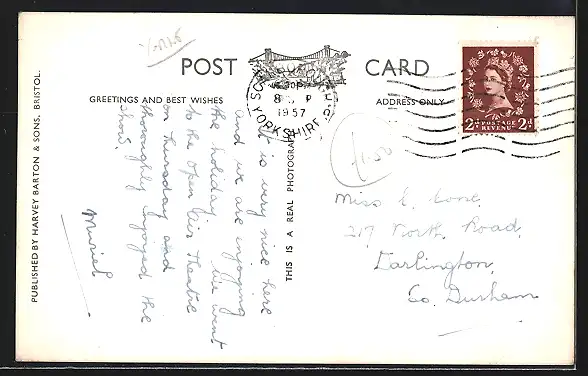 POST CARD
GREETINGS AND BEST WISHES
ADDRESS ONLY
SCARBOROUGH
8 SEP
1957
YORKSHIRE
POSTAGE
REVENUE
2d 2d
PUBLISHED BY HARVEY BARTON & SONS, BRISTOL.
THIS IS A REAL PHOTOGRAPH
It is very nice here
and we are enjoying
the holiday. We went
to the Open Air Theatre
on Thursday and
thoroughly enjoyed the
show.
Muriel
Miss E. Cone,
217 North Road,
Darlington,
Co. Durham
1.50